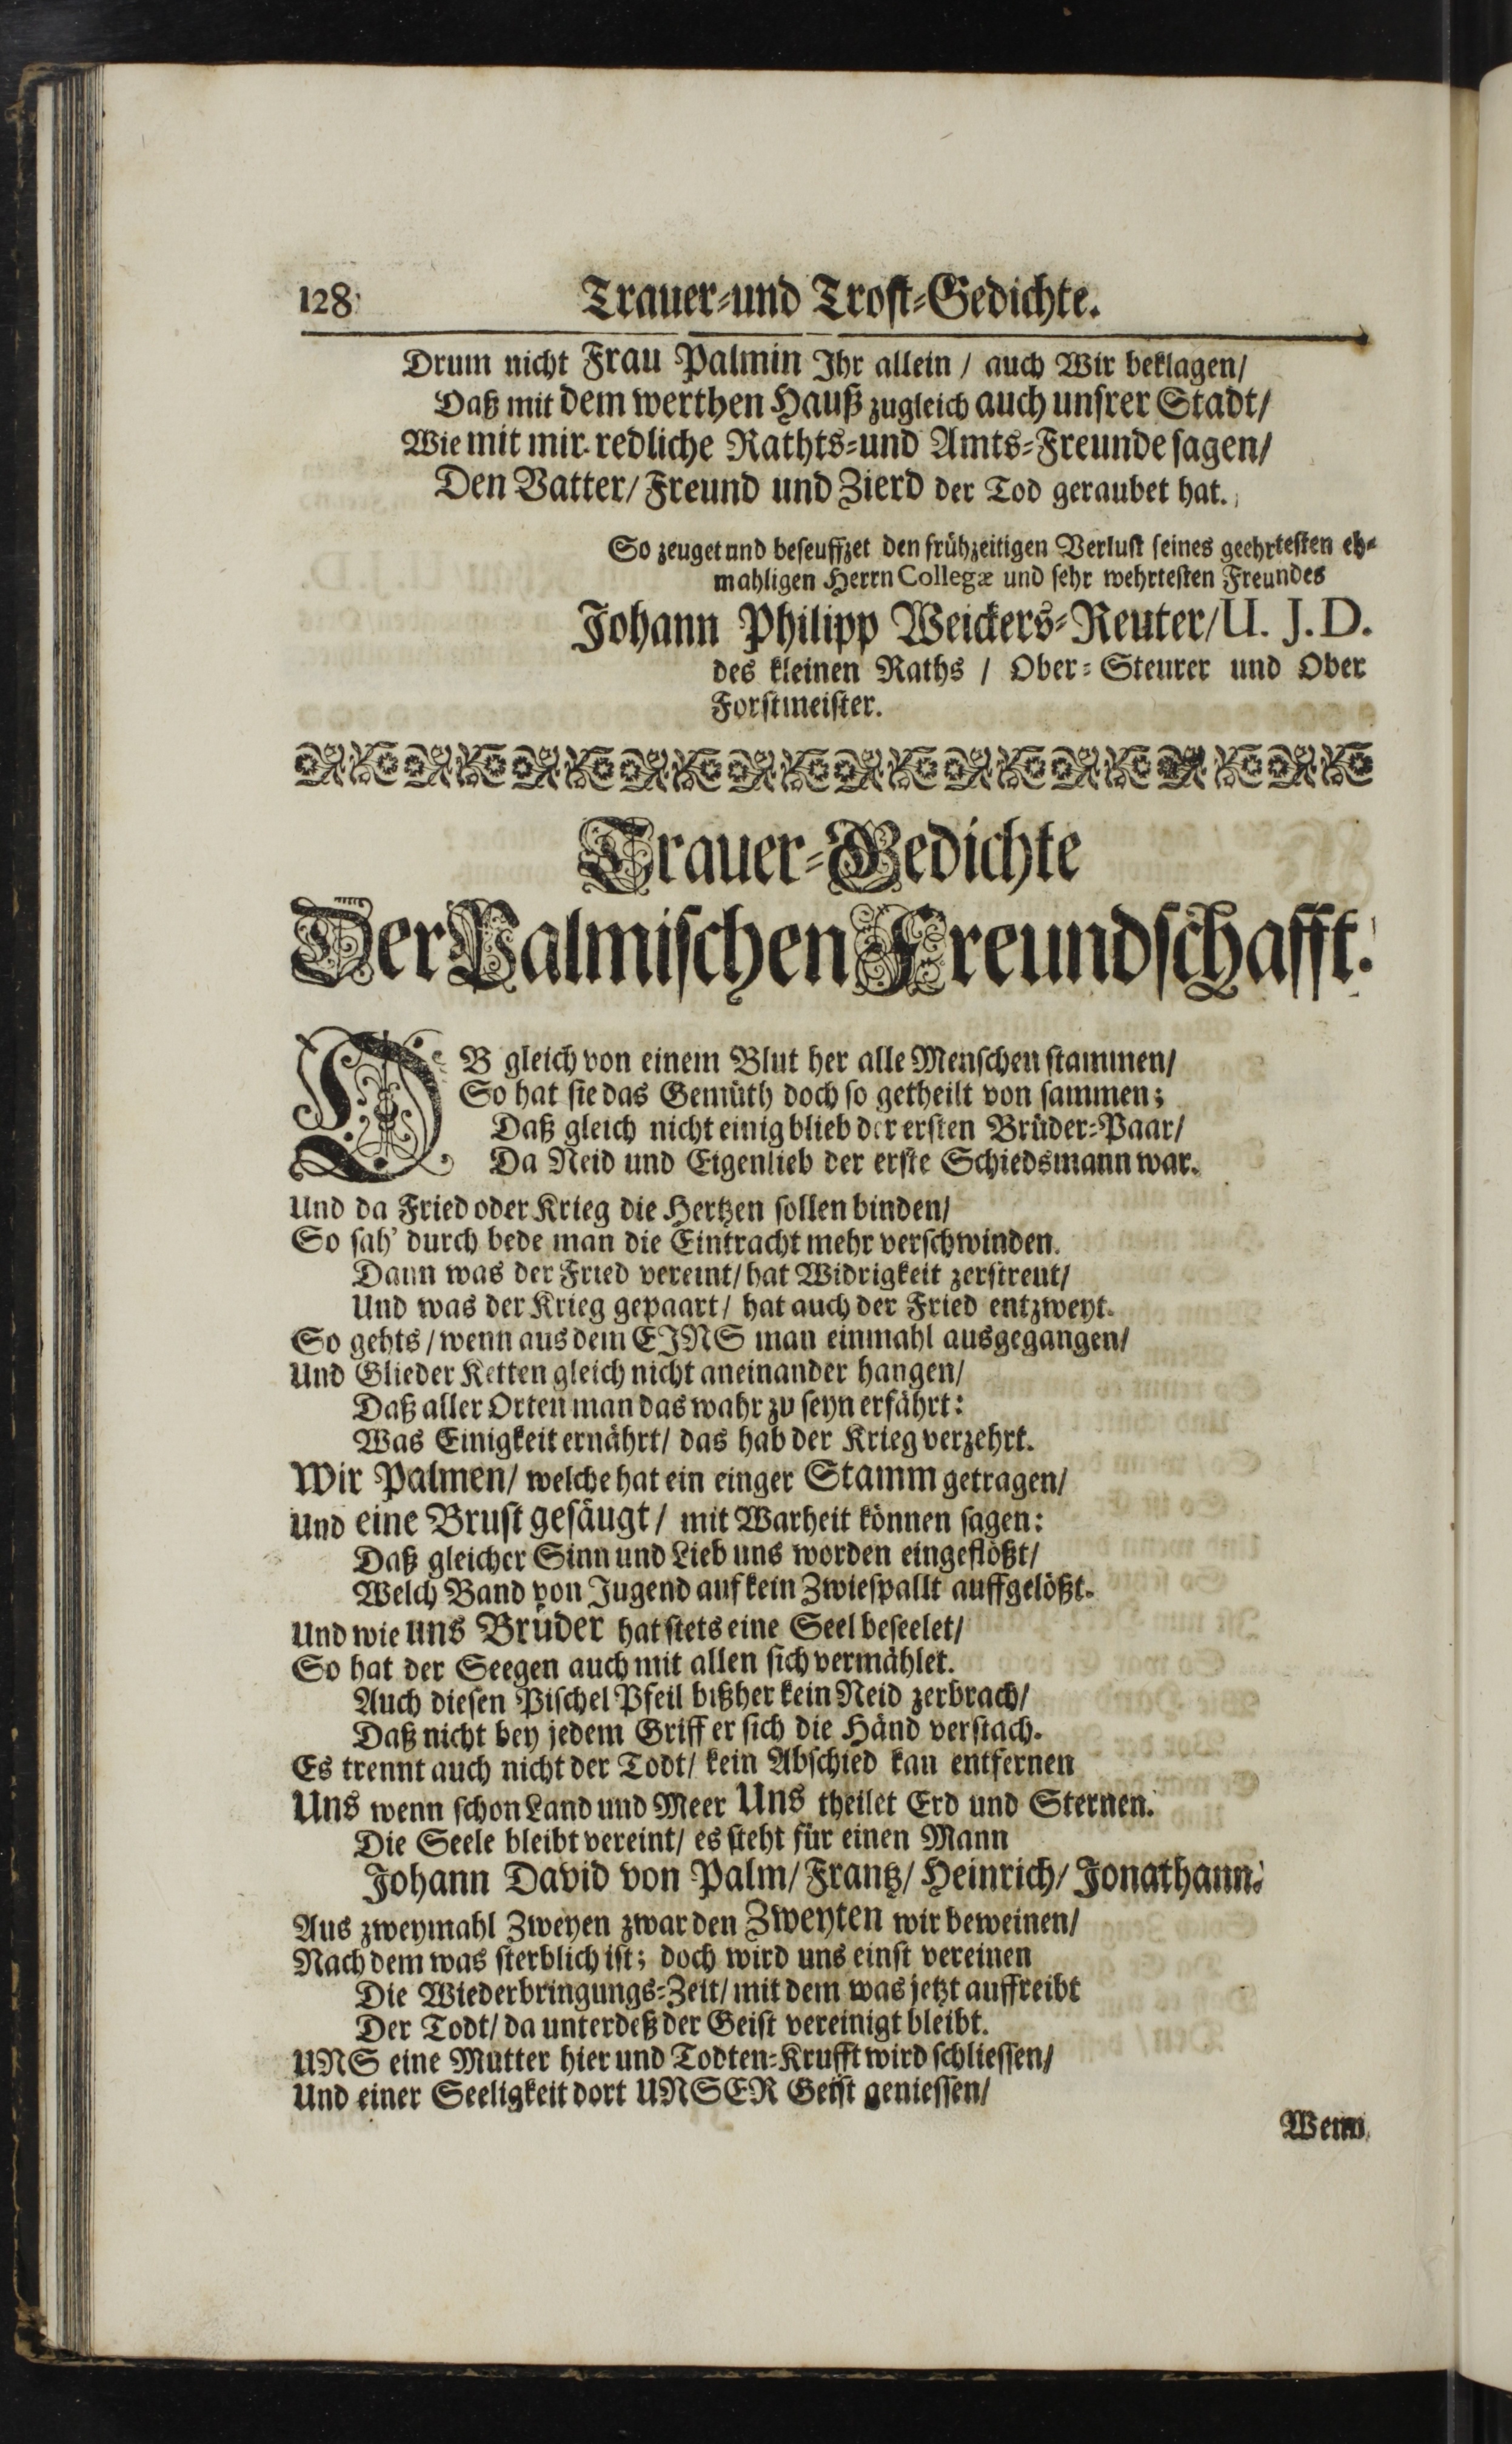 128 Trauer-und Trost-Gedichte.
Drum nicht Frau Palmin Ihr allein / auch Wir beklagen/
Daß mit dem werthen Hauß zugleich auch unsrer Stadt/
Wie mit mir redliche Rathts-und Amts-Freunde sagen/
Den Vatter/ Freund und Zierd der Tod geraubet hat.
So zeuget und beseuffzet den frühzeitigen Verlust seines geehrtesten eh-
mahligen Herrn Collegæ und sehr wehrtesten Freundes
Johann Philipp Weickers-Reuter/ U. J. D.
des kleinen Raths / Ober-Steurer und Ober
Forstmeister.
Trauer-Gedichte
Der Palmischen Freundschafft.
OB gleich von einem Blut her alle Menschen stammen/
So hat sie das Gemüth doch so getheilt von sammen;
Daß gleich nicht einig blieb der ersten Brüder-Paar/
Da Neid und Eigenlieb der erste Schiedsmann war.
Und da Fried oder Krieg die Hertzen sollen binden/
So sah' durch bede man die Eintracht mehr verschwinden.
Dann was der Fried vereint/ hat Widrigkeit zerstreut/
Und was der Krieg gepaart/ hat auch der Fried entzweyt.
So gehts / wenn aus dem EINS man einmahl ausgegangen/
Und Glieder Ketten gleich nicht aneinander hangen/
Daß aller Orten man das wahr zu seyn erfährt:
Was Einigkeit ernährt/ das hab der Krieg verzehrt.
Wir Palmen/ welche hat ein einger Stamm getragen/
Und eine Brust gesäugt/ mit Warheit können sagen:
Daß gleicher Sinn und Lieb uns worden eingeflößt/
Welch Band von Jugend auf kein Zwiespallt auffgelößt.
Und wie uns Brüder hat stets eine Seel beseelet/
So hat der Seegen auch mit allen sich vermählet.
Auch diesen Pischel Pfeil bißher kein Neid zerbrach/
Daß nicht bey jedem Griff er sich die Händ verstach.
Es trennt auch nicht der Todt/ kein Abschied kan entfernen
Uns wenn schon Land und Meer Uns theilet Erd und Sternen.
Die Seele bleibt vereint/ es steht für einen Mann
Johann David von Palm/ Frantz/ Heinrich/ Jonathann.
Aus zweymahl Zweyen zwar den Zweyten wir beweinen/
Nach dem was sterblich ist; doch wird uns einst vereinen
Die Wiederbringungs-Zeit/ mit dem was jetzt auffreibt
Der Todt/ da unterdeß der Geist vereinigt bleibt.
UNS eine Mutter hier und Todten-Krufft wird schliessen/
Und einer Seeligkeit dort UNSER Geist geniessen/
Wenn